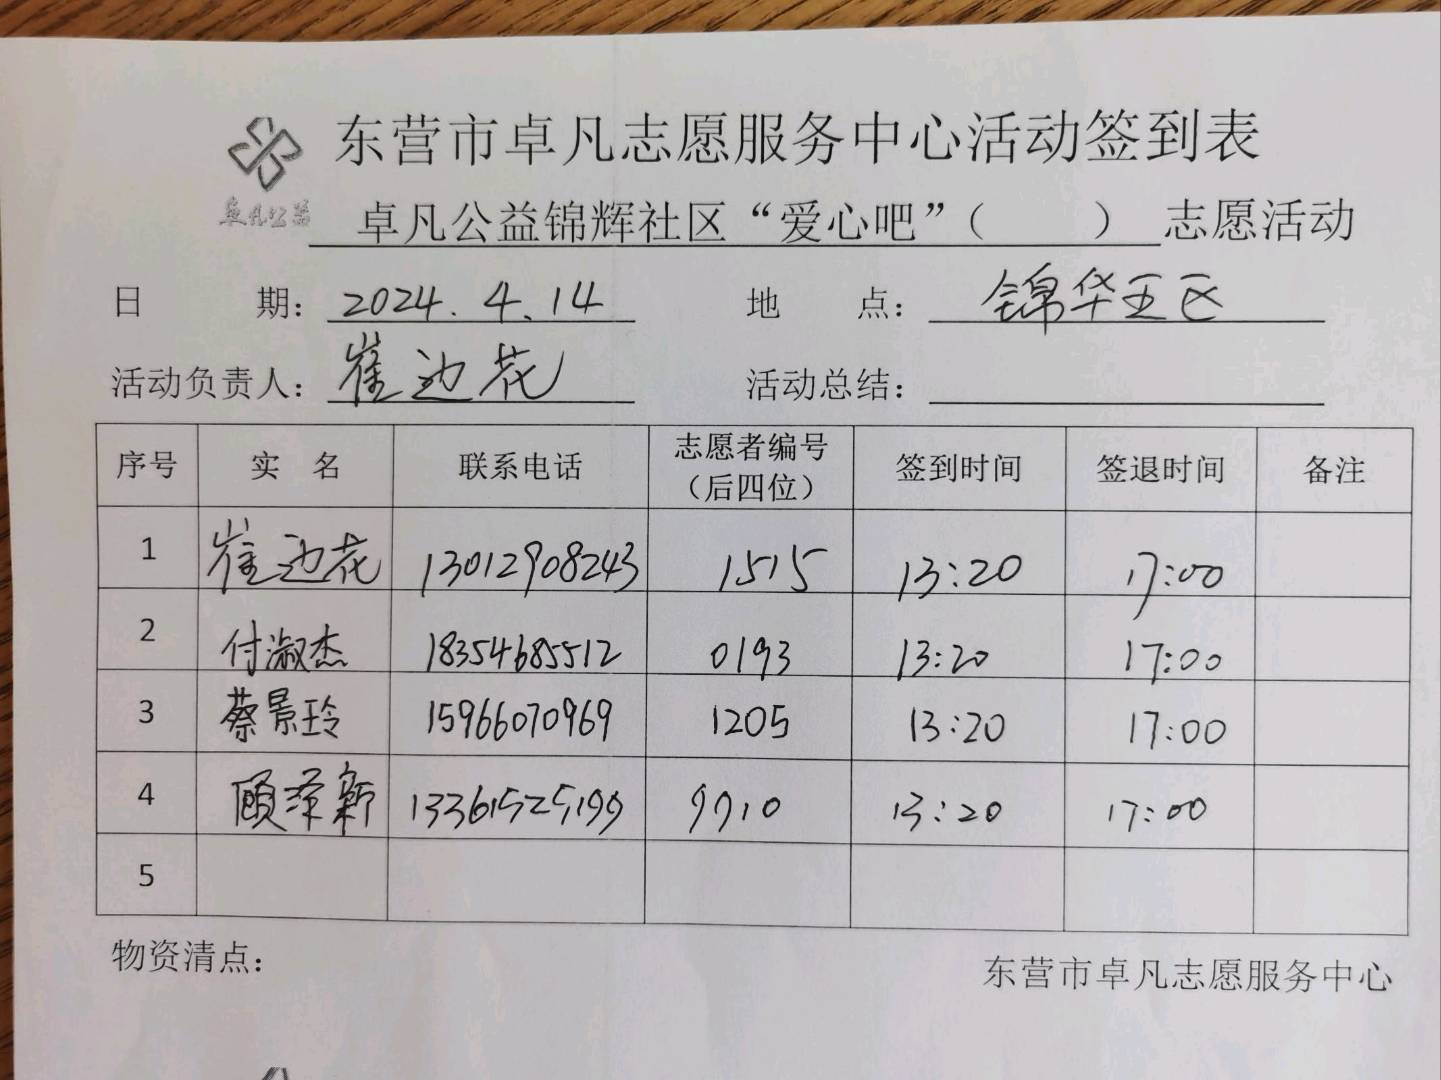 东营市卓凡志愿服务中心活动签到表
卓凡公益
卓凡公益锦辉社区“爱心吧”（ ）志愿活动
日 期：2024.4.14 地 点：锦华五区
活动负责人：崔边花 活动总结：
序号 实 名 联系电话 志愿者编号（后四位） 签到时间 签退时间 备注
1 崔边花 13012908243 1515 13:20 17:00
2 付淑杰 18354685512 0193 13:20 17:00
3 蔡景玲 15966070969 1205 13:20 17:00
4 顾泽新 13361525199 9910 13:20 17:00
5
物资清点：
东营市卓凡志愿服务中心